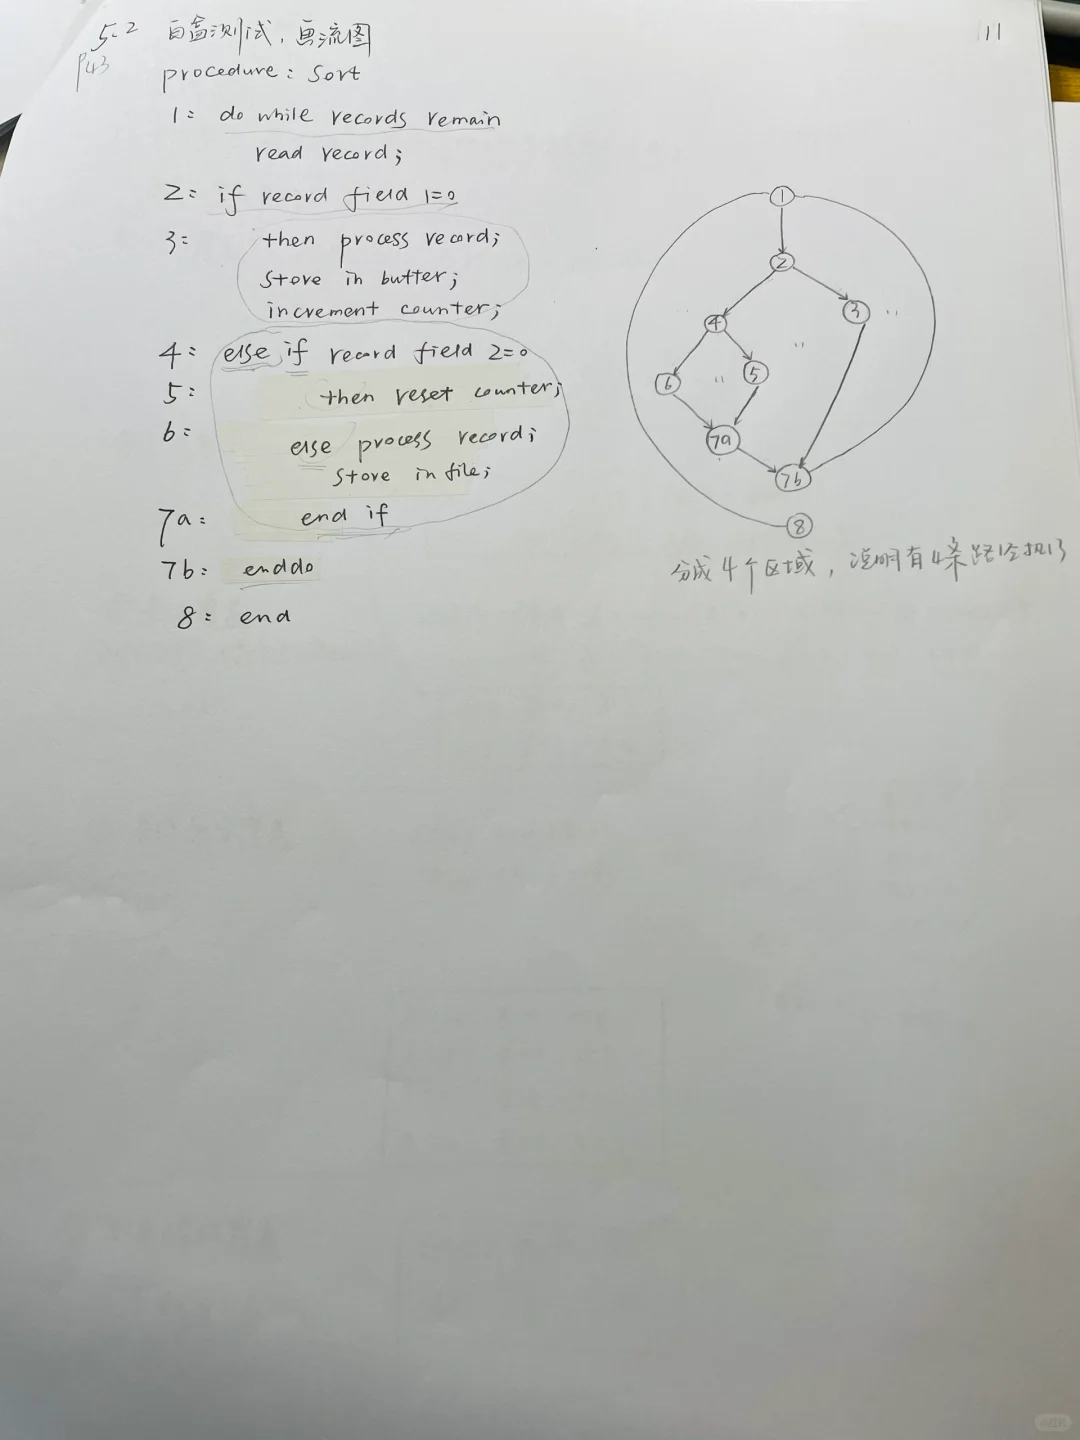 5.2 白盒测试，画流图
P43
11
procedure: Sort
1: do while records remain
read record;
2: if record field 1=0
3: then process record;
store in butter;
increment counter;
4: else if record field 2=0
5: then reset counter;
6: else process record;
store in file;
7a: end if
7b: enddo
8: end
1
2
4 3
6 5
7a
7b
8
分成4个区域，说明有4条路径